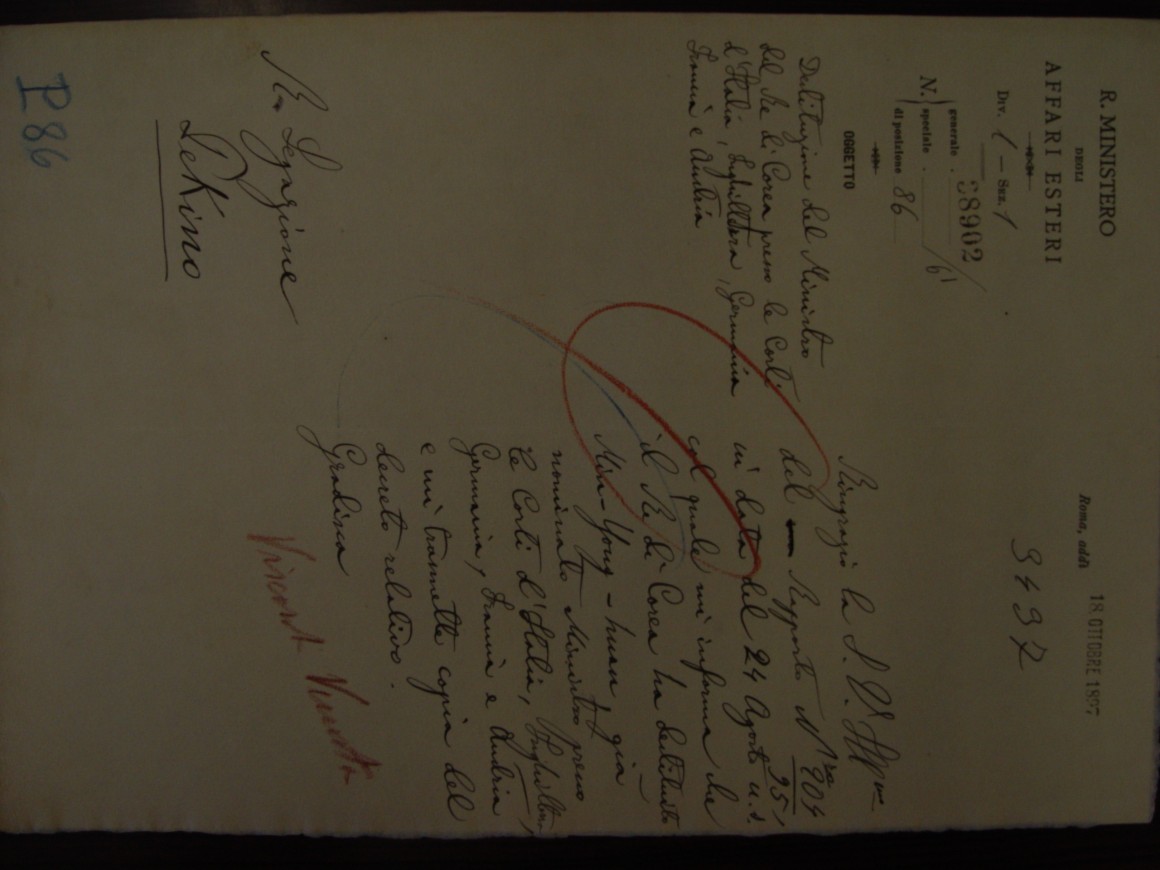 R. MINISTERO
DEGLI
AFFARI ESTERI
Div. 1 - Sez. 1
generale. 38902/61
N. speciale.
di posizione 86
OGGETTO
Destituzione del Ministro
del Re di Corea presso le Corti
d'Italia, Inghilterra, Germania
Francia e Austria
Roma, addì 18 OTTOBRE 1897
3497
Ringrazio la S. V. Ill.ma
del Rapporto N.
904
95,
in data del 24 Agosto u.s.
col quale mi informa che
il Re di Corea ha destituito
Min-Yong-huan già
nominato Ministro presso
le Corti d'Italia, Inghilterra,
Germania, Francia e Austria
e mi trasmette copia del
decreto relativo.
Gradisca
Visconti Venosta
R. Legazione
Pekino
P 86